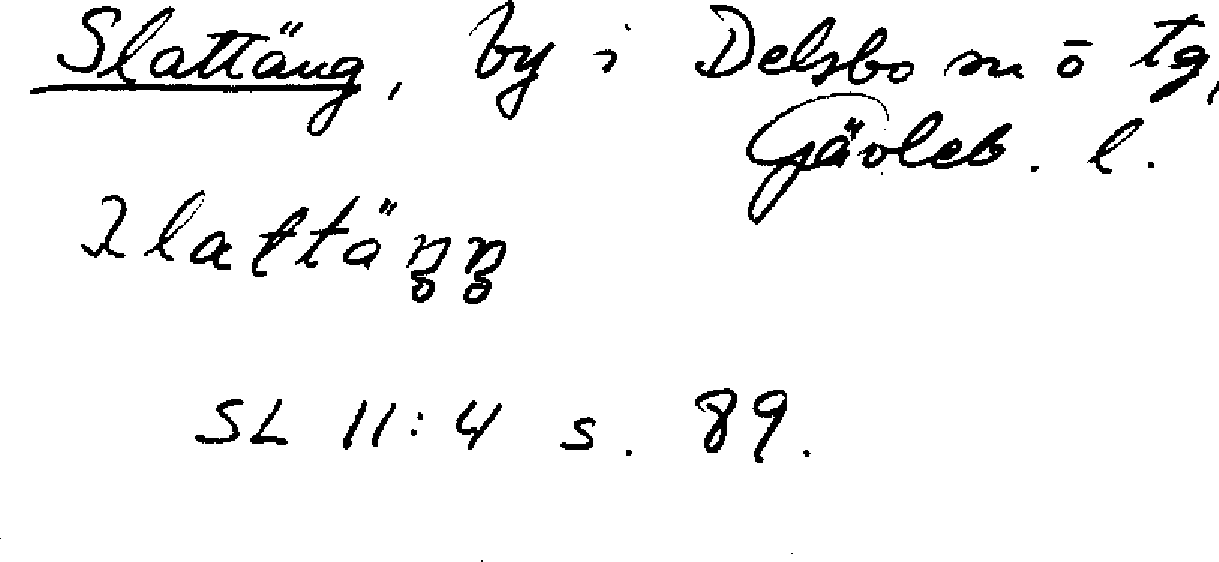 Slattäng, by i Delsbo sn o tg,
Gävleb. l.
SL 11:4 s. 89.